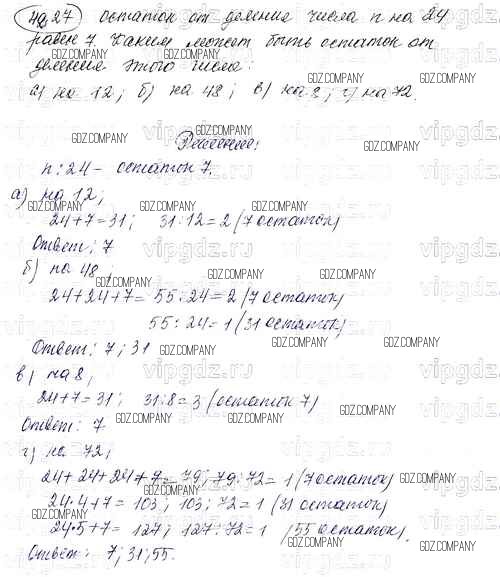 49.27 остаток от деления числа n на 24
равен 7. Каким может быть остаток от
деления этого числа:
а) на 12; б) на 48; в) на 8; г) на 72.
GDZ.COMPANY
Решение:
n : 24 - остаток 7.
а) на 12;
24+7=31; 31:12=2 (7 остаток)
Ответ: 7
б) на 48;
24+24+7= 55:24=2 (7 остаток)
55:24=1 (31 остаток)
Ответ: 7; 31
в) на 8;
24+7=31; 31:8=3 (остаток 7)
Ответ: 7
г) на 72;
24+24+24+7=79; 79:72=1 (7 остаток)
24·4+7=103; 103:72=1 (31 остаток)
24·5+7=127; 127:72=1 (55 остаток).
Ответ: 7; 31; 55.
vipgdz.ru